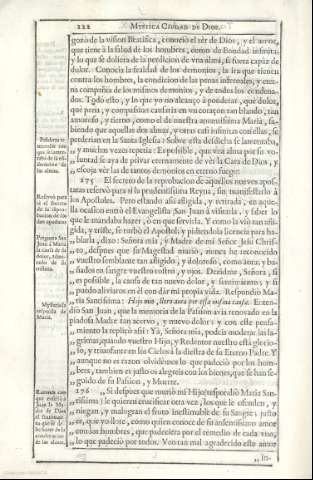 222 MYSTICA CIUDAD DE DIOS.
gozò de la vision Beatifica, conociò el sèr de Dios, y el amor,
que tiene à la salud de los hombres, como de Bondad infinita;
y lo que se doliera de la perdicion de vna alma, si fuera capàz de
dolor. Conocia la fealdad de los demonios, la ira que tienen
contra los hombres, la condicion de las penas infernales, y eter-
na compañia de los mismos demonios, y de todos los condena-
dos. Todo esto, y lo que yo no alcanço à ponderar, què dolor,
què pena, y compassion causaria en vn coraçon tan blando, tan
amoroso, y tierno, como el de nuestra amantissima Maria, sa-
biendo que aquellas dos almas, y otras casi infinitas con ellas, se
perderian en la Santa Iglesia? Sobre esta desdicha se lamentaba,
y muchas vezes repetia: Es possible, que vna alma por su vo-
luntad se aya de privar eternamente de vèr la Cara de Dios, y
escoja vèr las de tantos demonios en eterno fuego?
275 El secreto de la reprobacion de aquellos nuevos apos-
tatas reservò para sì la prudentissima Reyna, sin manifestarlo à
los Apostoles. Pero estando assi afligida, y retirada, en aque-
lla ocasion entrò el Evangelista San Juan à visitarla, y saber lo
que le mandaba hazer, ò en què servirla. Y como la viò tan afli-
gida, y triste, se turbò el Apostol; y pidiendola licencia para ha-
blarla, dixo: Señora mia, y Madre de mi Señor Jesu Chris-
to, despues que su Magestad muriò, nunca he reconocido
vuestro semblante tan afligido, y doloroso, como aora; ba-
ñados en sangre vuestro rostro, y ojos. Dezidme, Señora, si
es possible, la causa de tan nuevo dolor, y sentimiento, y si
puedo aliviaros en èl con dar mi propia vida. Respondiò Ma-
ria Santissima: Hijo mio, lloro aora por essa misma causa. Enten-
diò San Juan, que la memoria de la Passion avia renovado en la
piadosa Madre tan acervo, y nuevo dolor; y con este pensa-
miento la replicò assi: Yà, Señora mia, podeis moderar las la-
grimas, quando vuestro Hijo, y Redentor nuestro està glorio-
so, y triunfante en los Cielos à la diestra de su Eterno Padre. Y
aunque no es razon olvideis lo que padeciò por los hom-
bres, tambien es justo os alegreis con los bienes, que se han se-
guido de su Passion, y Muerte.
276 Si despues que muriò mi Hijo (respondiò Maria San-
tissima) le quieren crucificar otra vez, los que le ofenden, y
niegan, y malogran el fruto inestimable de su Sangre; justo
es, que yo llore, como quien conoce de su ardentissimo amor
con los hombres, que padeciera por el remedio de cada vno,
lo que padeciò por todos. Veo tan mal agradecido este amor
in-
Reservò para
sì el secreto
de la repro-
bacion de los
dos apostatas.
Pregunta San
Juan à Maria
la causa de su
dolor
Mysteriosa
respuesta de
Maria.